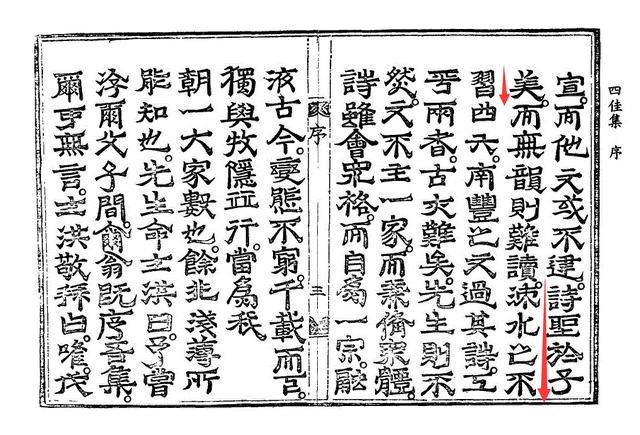 四佳集 序
宣。而他文或不逮。詩聖於子
美。而無韻則難讀。涑水之不
習四六。南豐之文過其詩。工
乎兩者。古亦難矣。先生則不
然。文不主一家。而兼備衆體。
詩雖會衆格。而自爲一宗。融
序 三
液古今。變態不窮。千載而下。
獨與牧隱並行。當爲我
朝一大家數也。餘非淺薄所
能知也。先生命士洪曰。予嘗
游爾父子間。爾翁旣序吾集。
爾可無言。士洪敬拜曰。唯。